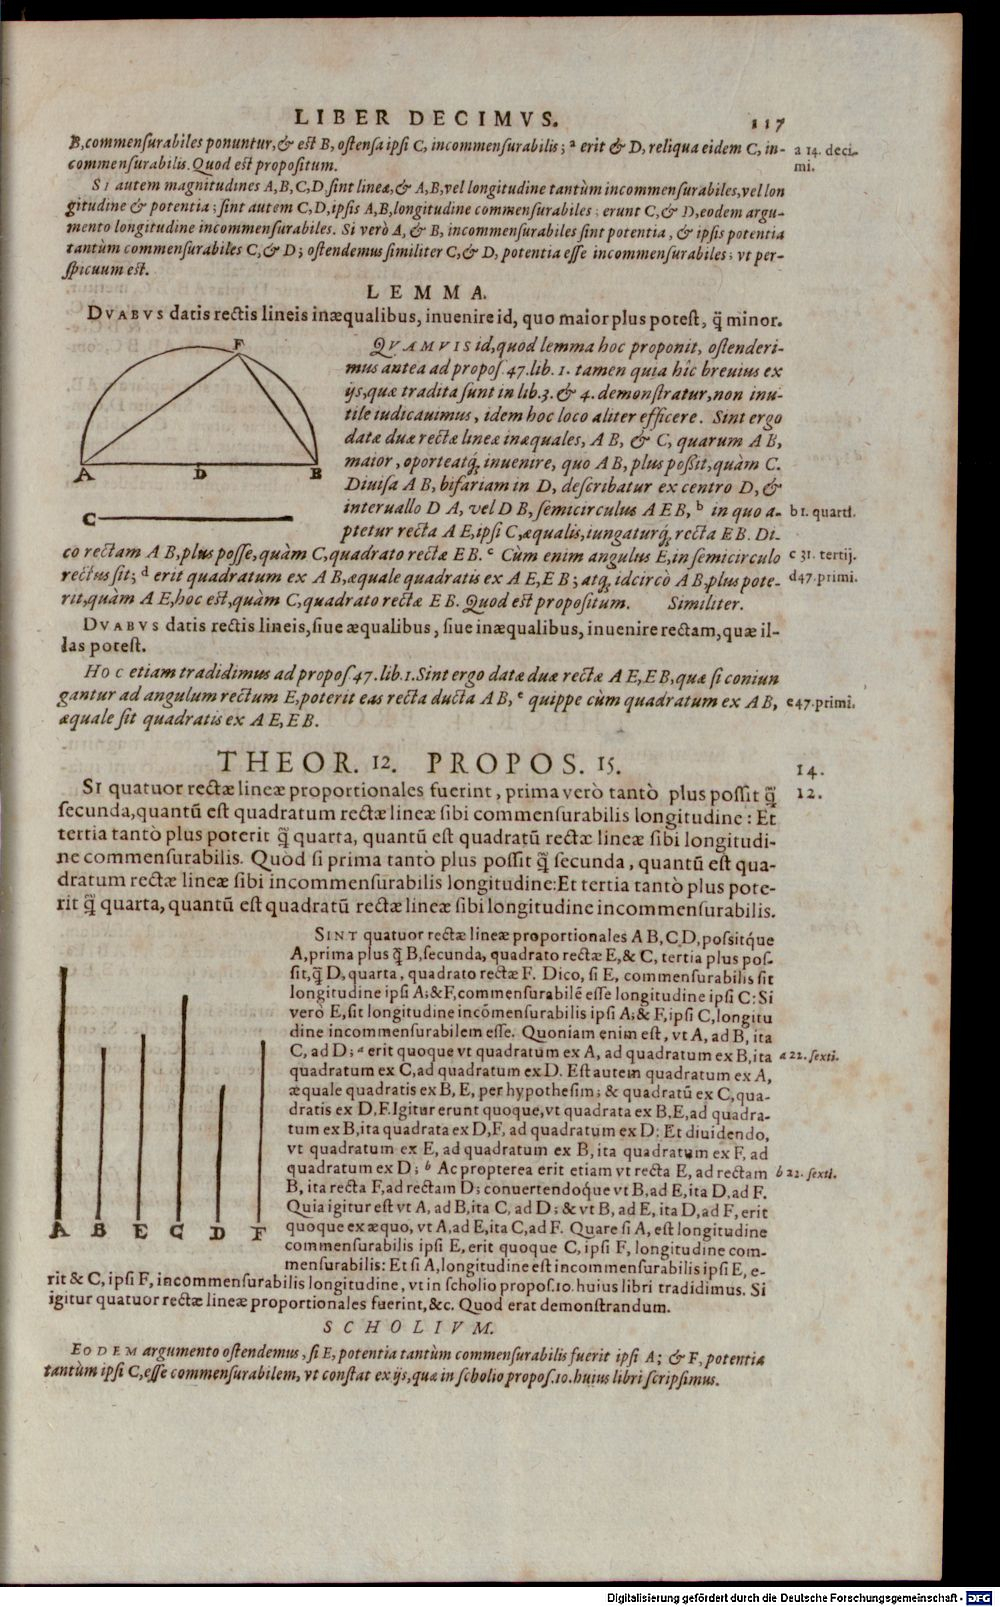 LIBER DECIMVS.
117
B, commensurabiles ponuntur, & est B, ostensa ipsi C, incommensurabilis; a erit & D, reliqua eidem C, in-
a 14. deci-
mi.
commensurabilis. Quod est propositum.
SI autem magnitudines A, B, C, D, sint lineæ, & A, B, vel longitudine tantùm incommensurabiles, vel lon
gitudine & potentia; sint autem C, D, ipsis A, B, longitudine commensurabiles; erunt C, & D, eodem argu-
mento longitudine incommensurabiles. Si verò A, & B, incommensurabiles sint potentia, & ipsis potentia
tantùm commensurabiles C, & D; ostendemus similiter C, & D, potentia esse incommensurabiles; vt per-
spicuum est.
LEMMA.
DVABVS datis rectis lineis inæqualibus, inuenire id, quo maior plus potest, q̃ minor.
QVAMVIS id, quod lemma hoc proponit, ostenderi-
mus antea ad propos. 47. lib. 1. tamen quia hîc breuius ex
ijs, quæ tradita sunt in lib. 3. & 4. demonstratur, non inu-
tile iudicauimus, idem hoc loco aliter efficere. Sint ergo
datæ duæ rectæ lineæ inæquales, A B, & C, quarum A B,
maior, oporteatq́; inuenire, quo A B, plus possit, quàm C.
Diuisa A B, bifariam in D, describatur ex centro D, &
interuallo D A, vel D B, semicirculus A E B, b in quo a-
b 1. quarti.
ptetur recta A E, ipsi C, æqualis, iungaturq́; recta E B. Di-
co rectam A B, plus posse, quàm C, quadrato rectæ E B. c Cùm enim angulus E, in semicirculo
c 31. tertij.
rectus sit; d erit quadratum ex A B, æquale quadratis ex A E, E B; atq́; idcircò A B, plus pote-
d 47. primi.
rit, quàm A E, hoc est, quàm C, quadrato rectæ E B. Quod est propositum. Similiter.
DVABVS datis rectis lineis, siue æqualibus, siue inæqualibus, inuenire rectam, quæ il-
las potest.
HOC etiam tradidimus ad propos. 47. lib. 1. Sint ergo datæ duæ rectæ A E, E B, quæ si coniun
gantur ad angulum rectum E, poterit eas recta ducta A B, e quippe cùm quadratum ex A B,
e 47. primi.
æquale sit quadratis ex A E, E B.
F
A
D
B
C
THEOR. 12. PROPOS. 15.
14.
12.
SI quatuor rectæ lineæ proportionales fuerint, prima verò tantò plus possit q̃
secunda, quantũ est quadratum rectæ lineæ sibi commensurabilis longitudine: Et
tertia tantò plus poterit q̃ quarta, quantũ est quadratũ rectæ lineæ sibi longitudi-
ne commensurabilis. Quòd si prima tantò plus possit q̃ secunda, quantũ est qua-
dratum rectæ lineæ sibi incommensurabilis longitudine: Et tertia tantò plus pote-
rit q̃ quarta, quantũ est quadratũ rectæ lineæ sibi longitudine incommensurabilis.
SINT quatuor rectæ lineæ proportionales A B, C, D, possitq́ue
A, prima plus q̃ B, secunda, quadrato rectæ E, & C, tertia plus pos-
sit, q̃ D, quarta, quadrato rectæ F. Dico, si E, commensurabilis sit
longitudine ipsi A; & F, commensurabilẽ esse longitudine ipsi C: Si
verò E, sit longitudine incõmensurabilis ipsi A; & F, ipsi C, longitu
dine incommensurabilem esse. Quoniam enim est, vt A, ad B, ita
C, ad D; a erit quoque vt quadratum ex A, ad quadratum ex B, ita
a 22. sexti.
quadratum ex C, ad quadratum ex D. Est autem quadratum ex A,
æquale quadratis ex B, E, per hypothesim; & quadratũ ex C, qua-
dratis ex D, F. Igitur erunt quoque, vt quadrata ex B, E, ad quadra-
tum ex B, ita quadrata ex D, F, ad quadratum ex D: Et diuidendo,
vt quadratum ex E, ad quadratum ex B, ita quadratum ex F, ad
quadratum ex D; b Ac propterea erit etiam vt recta E, ad rectam
b 22. sexti.
B, ita recta F, ad rectam D; conuertendoq́ue vt B, ad E, ita D, ad F.
Quia igitur est vt A, ad B, ita C, ad D; & vt B, ad E, ita D, ad F, erit
quoque ex æquo, vt A, ad E, ita C, ad F. Quare si A, est longitudine
commensurabilis ipsi E, erit quoque C, ipsi F, longitudine com-
mensurabilis: Et si A, longitudine est incommensurabilis ipsi E, e-
rit & C, ipsi F, incommensurabilis longitudine, vt in scholio propos. 10. huius libri tradidimus. Si
igitur quatuor rectæ lineæ proportionales fuerint, &c. Quod erat demonstrandum.
A B E C D F
SCHOLIVM.
EODEM argumento ostendemus, si E, potentia tantùm commensurabilis fuerit ipsi A; & F, potentia
tantùm ipsi C, esse commensurabilem, vt constat ex ijs, quæ in scholio propos. 10. huius libri scripsimus.
Digitalisierung gefördert durch die Deutsche Forschungsgemeinschaft - DFG